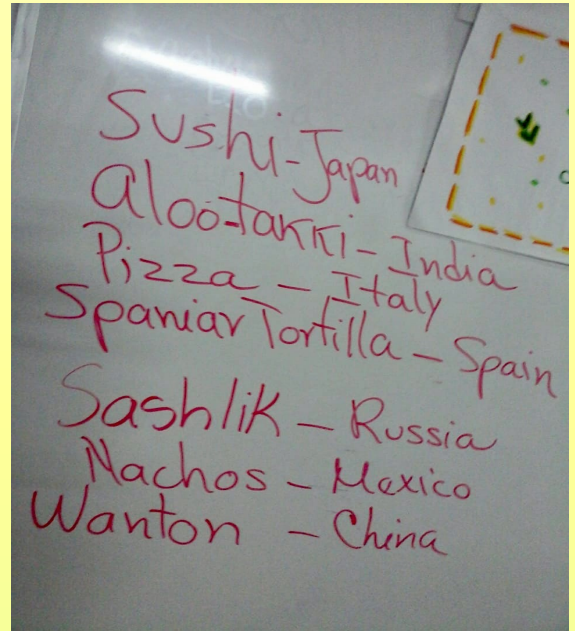 Sushi-Japan
alootakki-India
Pizza - Italy
Spaniar Tortilla - Spain
Sashlik - Russia
Nachos - Mexico
Wanton - China